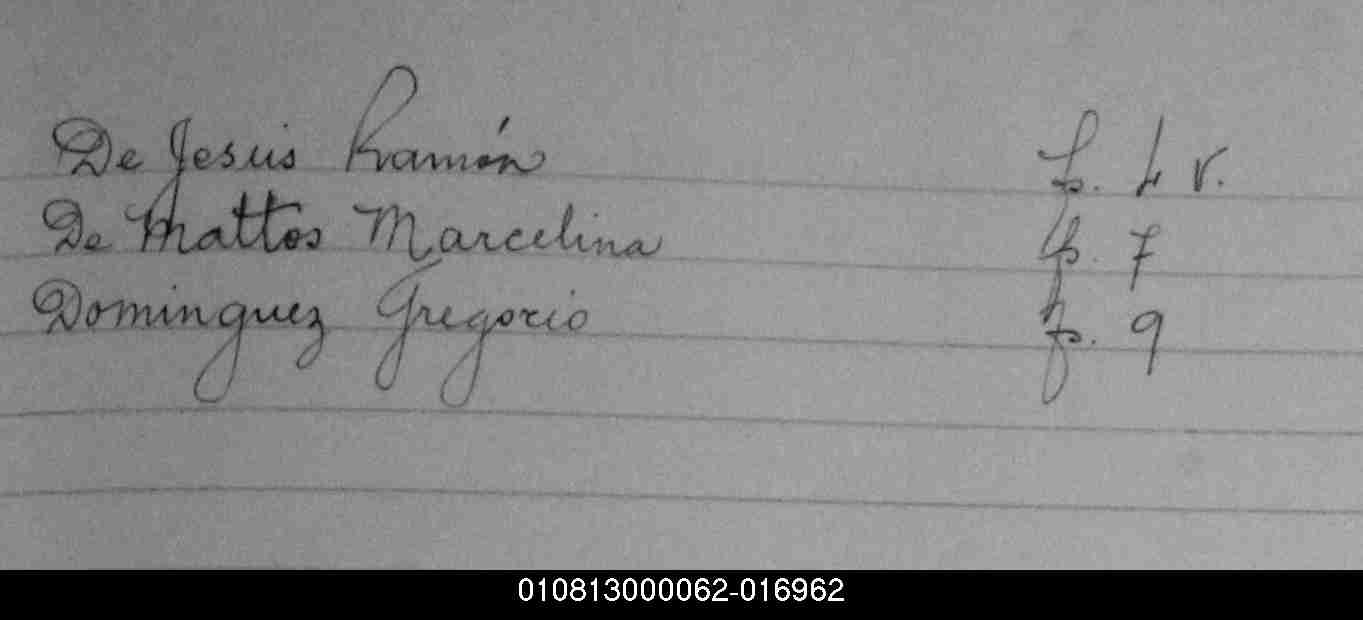 De Jesús Ramón f. 4 v.
De Mattos Marcelina f. 7
Dominguez Gregorio f. 9
010813000062-016962